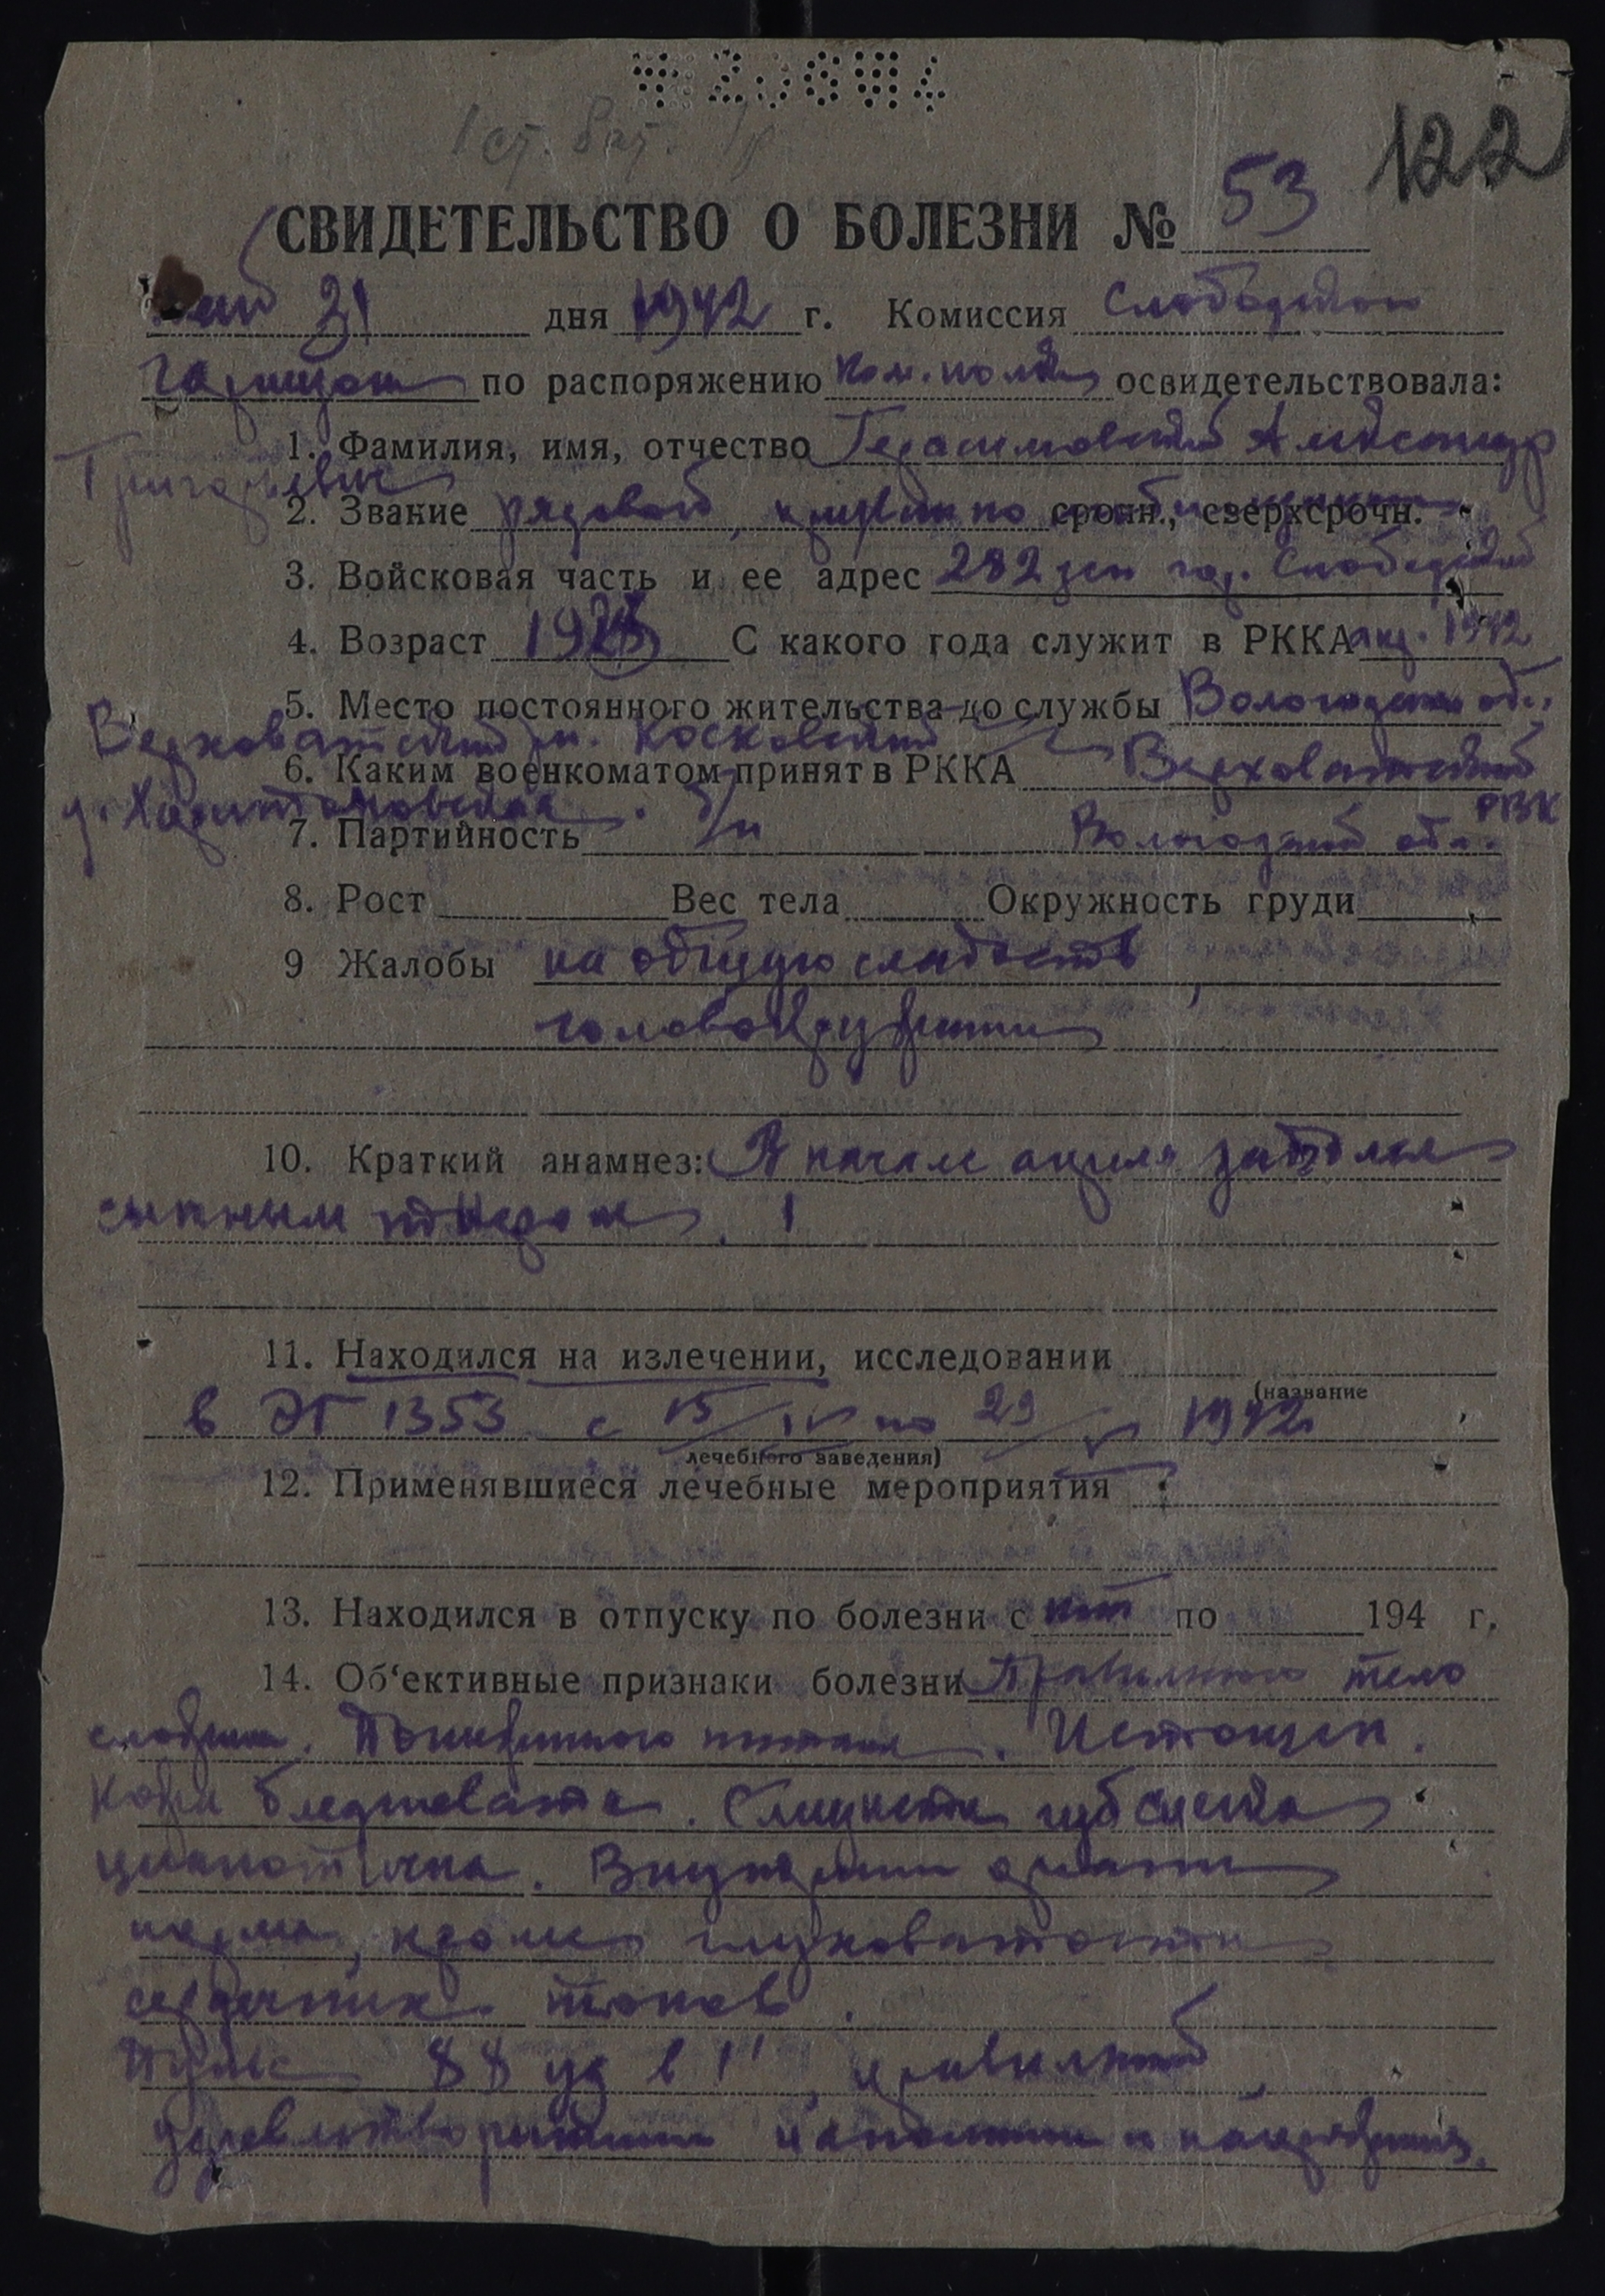 1 ст. бат.
122
СВИДЕТЕЛЬСТВО О БОЛЕЗНИ № 53
31 дня 1942 г. Комиссия Слободском
гарнизон по распоряжению ком. полка освидетельствовала:
1. Фамилия, имя, отчество Герасимовский Александр
Григорьевич
2. Звание рядовой, срочн., сверхсрочн.
3. Войсковая часть и ее адрес 282 зсп гор. Слободской
4. Возраст С какого года служит в РККА 1942
5. Место постоянного жительства до службы Вологодская обл.,
Верховажский Косковский
6. Каким военкоматом принят в РККА Верховажский
д. Харитоновская. РВК
7. Партийность б/п Вологодской обл.
8. Рост Вес тела Окружность груди
9 Жалобы на общую слабость,
головокружения
10. Краткий анамнез: В начале апреля заболел
сыпным тифом.
11. Находился на излечении, исследовании
(название
в ЭГ 1353 с 15/IV по 29/V 1942
лечебного заведения)
12. Применявшиеся лечебные мероприятия ?
13. Находился в отпуску по болезни с нет по 194 г.
14. Об‘ективные признаки болезни Правильного тело
сложения. Пониженного питания. Истощен.
Кожа бледновата. Слизистая губ слегка
цианотична. Внутренние органы
норма, кроме глуховатости
сердечных тонов.
Пульс 88 уд в 1', правильный,
удовлетворительного наполнения и напряжения.